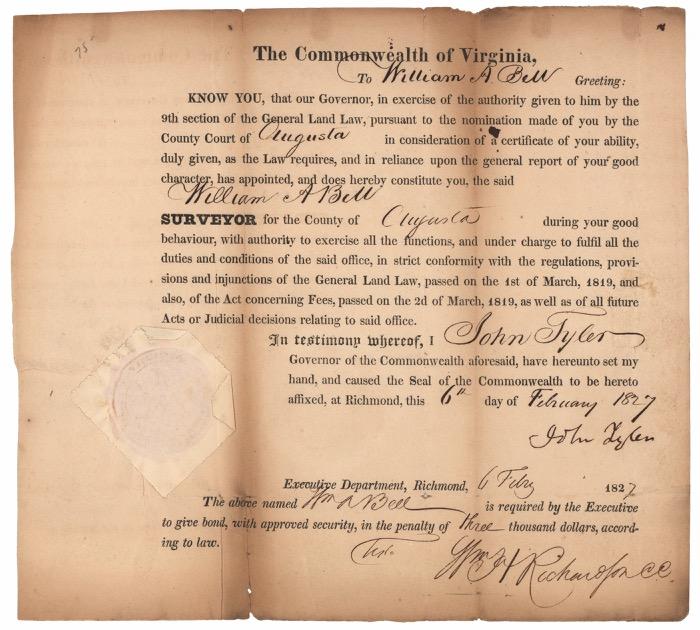 75
The Commonwealth of Virginia,
To William A Bell Greeting:
KNOW YOU, that our Governor, in exercise of the authority given to him by the
9th section of the General Land Law, pursuant to the nomination made of you by the
County Court of Augusta in consideration of a certificate of your ability,
duly given, as the Law requires, and in reliance upon the general report of your good
character, has appointed, and does hereby constitute you, the said
William A Bell
SURVEYOR for the County of Augusta during your good
behaviour, with authority to exercise all the functions, and under charge to fulfil all the
duties and conditions of the said office, in strict conformity with the regulations, provi-
sions and injunctions of the General Land Law, passed on the 1st of March, 1819, and
also, of the Act concerning Fees, passed on the 2d of March, 1819, as well as of all future
Acts or Judicial decisions relating to said office.
In testimony whereof, I John Tyler
Governor of the Commonwealth aforesaid, have hereunto set my
hand, and caused the Seal of the Commonwealth to be hereto
affixed, at Richmond, this 6th day of February 1827
John Tyler
Executive Department, Richmond, 6 Feby 1827.
The above named Wm A Bell is required by the Executive
to give bond, with approved security, in the penalty of three thousand dollars, accord-
ing to law.
Wm H Richardson CC